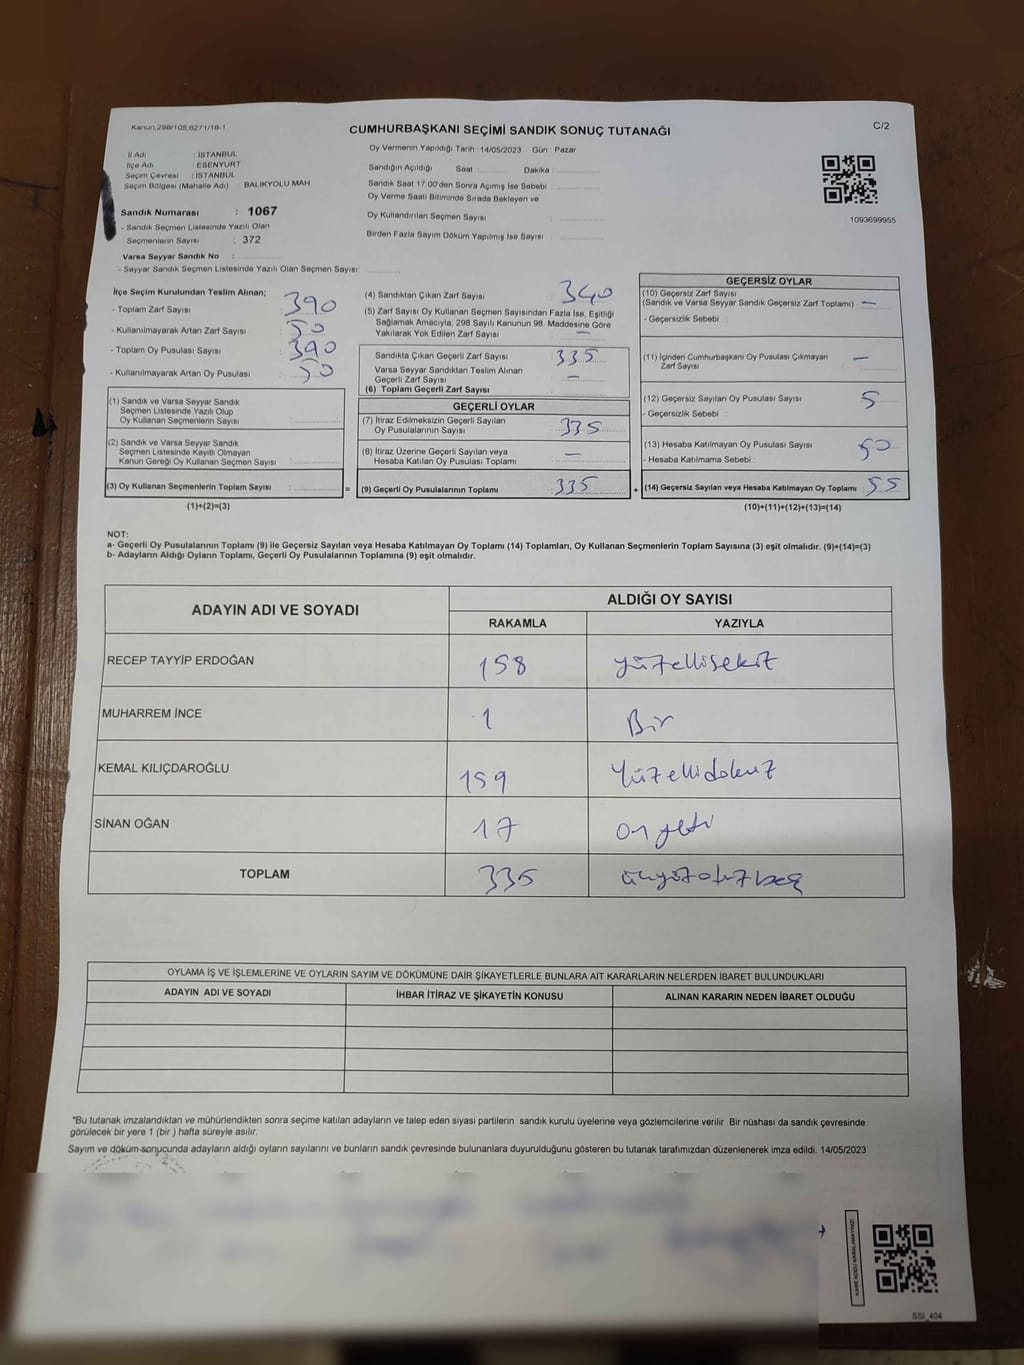 Kanun.298/105,6271/18-1
CUMHURBAŞKANI SEÇİMİ SANDIK SONUÇ TUTANAĞI
C/2
İl Adı : İSTANBUL
İlçe Adı : ESENYURT
Seçim Çevresi : İSTANBUL
Seçim Bölgesi (Mahalle Adı) : BALIKYOLU MAH.
Sandık Numarası : 1067
- Sandık Seçmen Listesinde Yazılı Olan
Seçmenlerin Sayısı : 372
Varsa Seyyar Sandık No :
- Seyyar Sandık Seçmen Listesinde Yazılı Olan Seçmen Sayısı:
Oy Vermenin Yapıldığı Tarih : 14/05/2023 Gün : Pazar
Sandığın Açıldığı Saat : Dakika :
Sandık Saat 17:00'den Sonra Açımış İse Sebebi :
Oy Verme Saati Bitiminde Sırada Bekleyen ve
Oy Kullandırılan Seçmen Sayısı :
Birden Fazla Sayım Döküm Yapılmış İse Sayısı :
1093699955
İlçe Seçim Kurulundan Teslim Alınan;
- Toplam Zarf Sayısı : 390
- Kullanılmayarak Artan Zarf Sayısı : 50
- Toplam Oy Pusulası Sayısı : 390
- Kullanılmayarak Artan Oy Pusulası : 50
(1) Sandık ve Varsa Seyyar Sandık
Seçmen Listesinde Yazılı Olup
Oy Kullanan Seçmenlerin Sayısı :
(2) Sandık ve Varsa Seyyar Sandık
Seçmen Listesinde Kayıtlı Olmayan
Kanun Gereği Oy Kullanan Seçmen Sayısı :
(3) Oy Kullanan Seçmenlerin Toplam Sayısı : =
(1)+(2)=(3)
(4) Sandıktan Çıkan Zarf Sayısı : 340
(5) Zarf Sayısı Oy Kullanan Seçmen Sayısından Fazla İse, Eşitliği
Sağlamak Amacıyla, 298 Sayılı Kanunun 98. Maddesine Göre
Yakılarak Yok Edilen Zarf Sayısı : —
Sandıkta Çıkan Geçerli Zarf Sayısı : 335
Varsa Seyyar Sandıktan Teslim Alınan
Geçerli Zarf Sayısı : —
(6) Toplam Geçerli Zarf Sayısı :
GEÇERLİ OYLAR
(7) İtiraz Edilmeksizin Geçerli Sayılan
Oy Pusulalarının Sayısı : 335
(8) İtiraz Üzerine Geçerli Sayılan veya
Hesaba Katılan Oy Pusulası Toplamı : —
(9) Geçerli Oy Pusulalarının Toplamı : 335 +
GEÇERSİZ OYLAR
(10) Geçersiz Zarf Sayısı
(Sandık ve Varsa Seyyar Sandık Geçersiz Zarf Toplamı) : —
- Geçersizlik Sebebi :
(11) İçinden Cumhurbaşkanı Oy Pusulası Çıkmayan
Zarf Sayısı : —
(12) Geçersiz Sayılan Oy Pusulası Sayısı : 5
- Geçersizlik Sebebi :
(13) Hesaba Katılmayan Oy Pusulası Sayısı : 50
- Hesaba Katılmama Sebebi :
(14) Geçersiz Sayılan veya Hesaba Katılmayan Oy Toplamı : 55
(10)+(11)+(12)+(13)=(14)
NOT:
a- Geçerli Oy Pusulalarının Toplamı (9) ile Geçersiz Sayılan veya Hesaba Katılmayan Oy Toplamı (14) Toplamları, Oy Kullanan Seçmenlerin Toplam Sayısına (3) eşit olmalıdır. (9)+(14)=(3)
b- Adayların Aldığı Oyların Toplamı, Geçerli Oy Pusulalarının Toplamına (9) eşit olmalıdır.
ADAYIN ADI VE SOYADI
ALDIĞI OY SAYISI
RAKAMLA YAZIYLA
RECEP TAYYİP ERDOĞAN 158 yüzellisekiz
MUHARREM İNCE 1 Bir
KEMAL KILIÇDAROĞLU 159 Yüzellidokuz
SİNAN OĞAN 17 onyedi
TOPLAM 335 üçyüzotuzbeş
OYLAMA İŞ VE İŞLEMLERİNE VE OYLARIN SAYIM VE DÖKÜMÜNE DAİR ŞİKAYETLERLE BUNLARA AİT KARARLARIN NELERDEN İBARET BULUNDUKLARI
ADAYIN ADI VE SOYADI İHBAR İTİRAZ VE ŞİKAYETİN KONUSU ALINAN KARARIN NEDEN İBARET OLDUĞU
*Bu tutanak imzalandıktan ve mühürlendikten sonra seçime katılan adayların ve talep eden siyasi partilerin sandık kurulu üyelerine veya gözlemcilerine verilir. Bir nüshası da sandık çevresinde
görülecek bir yere 1 (bir ) hafta süreyle asılır.
Sayım ve döküm sonucunda adayların aldığı oyların sayılarını ve bunların sandık çevresinde bulunanlara duyurulduğunu gösteren bu tutanak tarafımızdan düzenlenerek imza edildi. 14/05/2023
SSİ_404